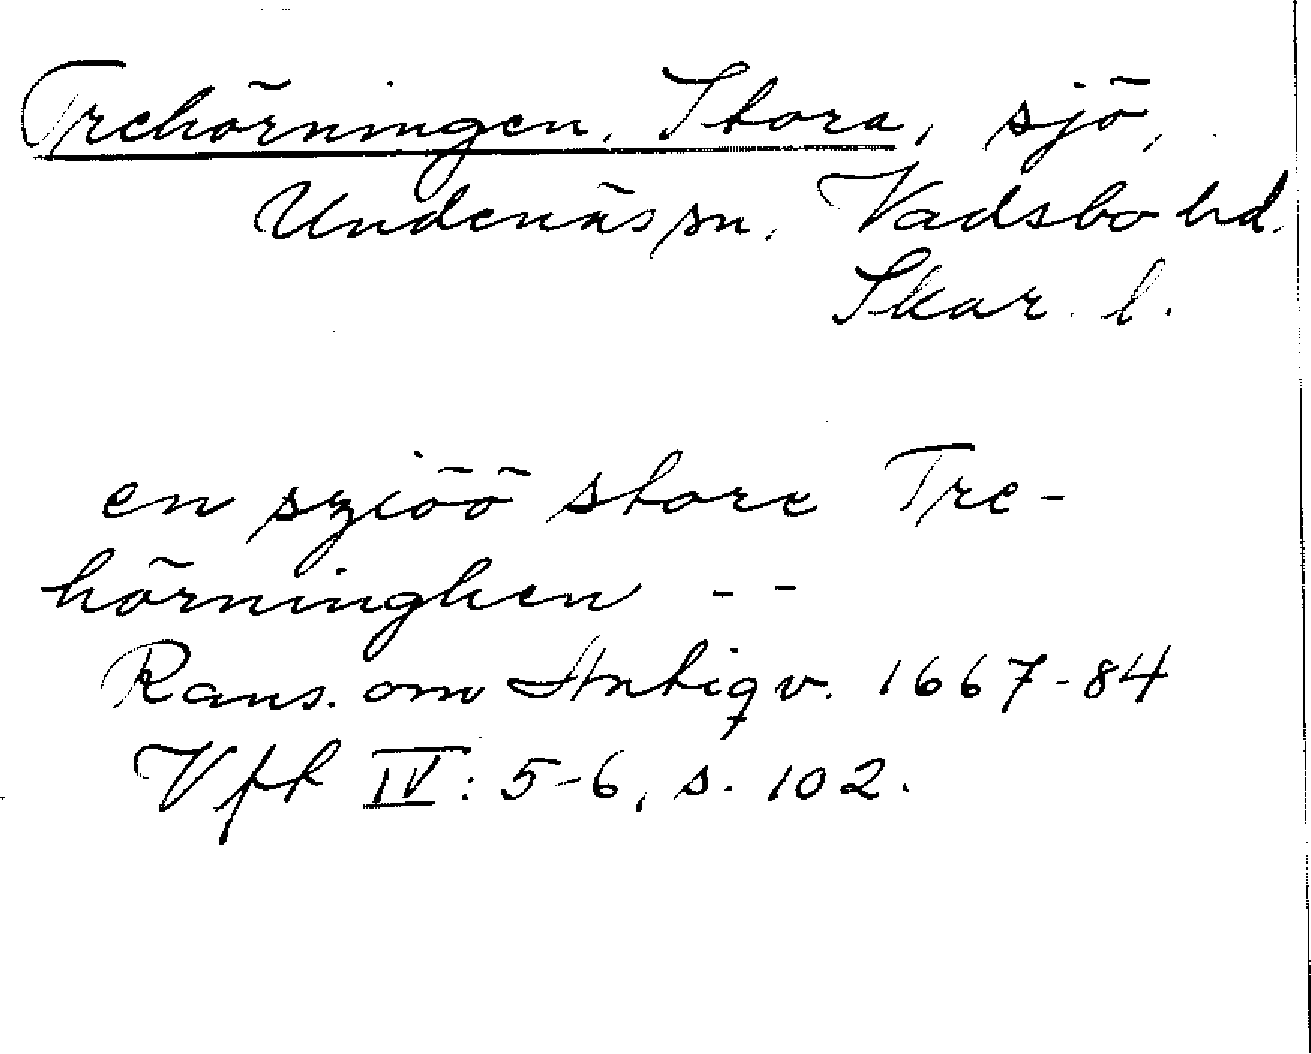 Trehörningen, Stora, sjö,
Undenäs sn, Vadsbo hd.
Skar. l.
en sziöö store Tre-
hörninghen - -
Rans. om Antiqv. 1667-84
Vfk IV: 5-6, s. 102.